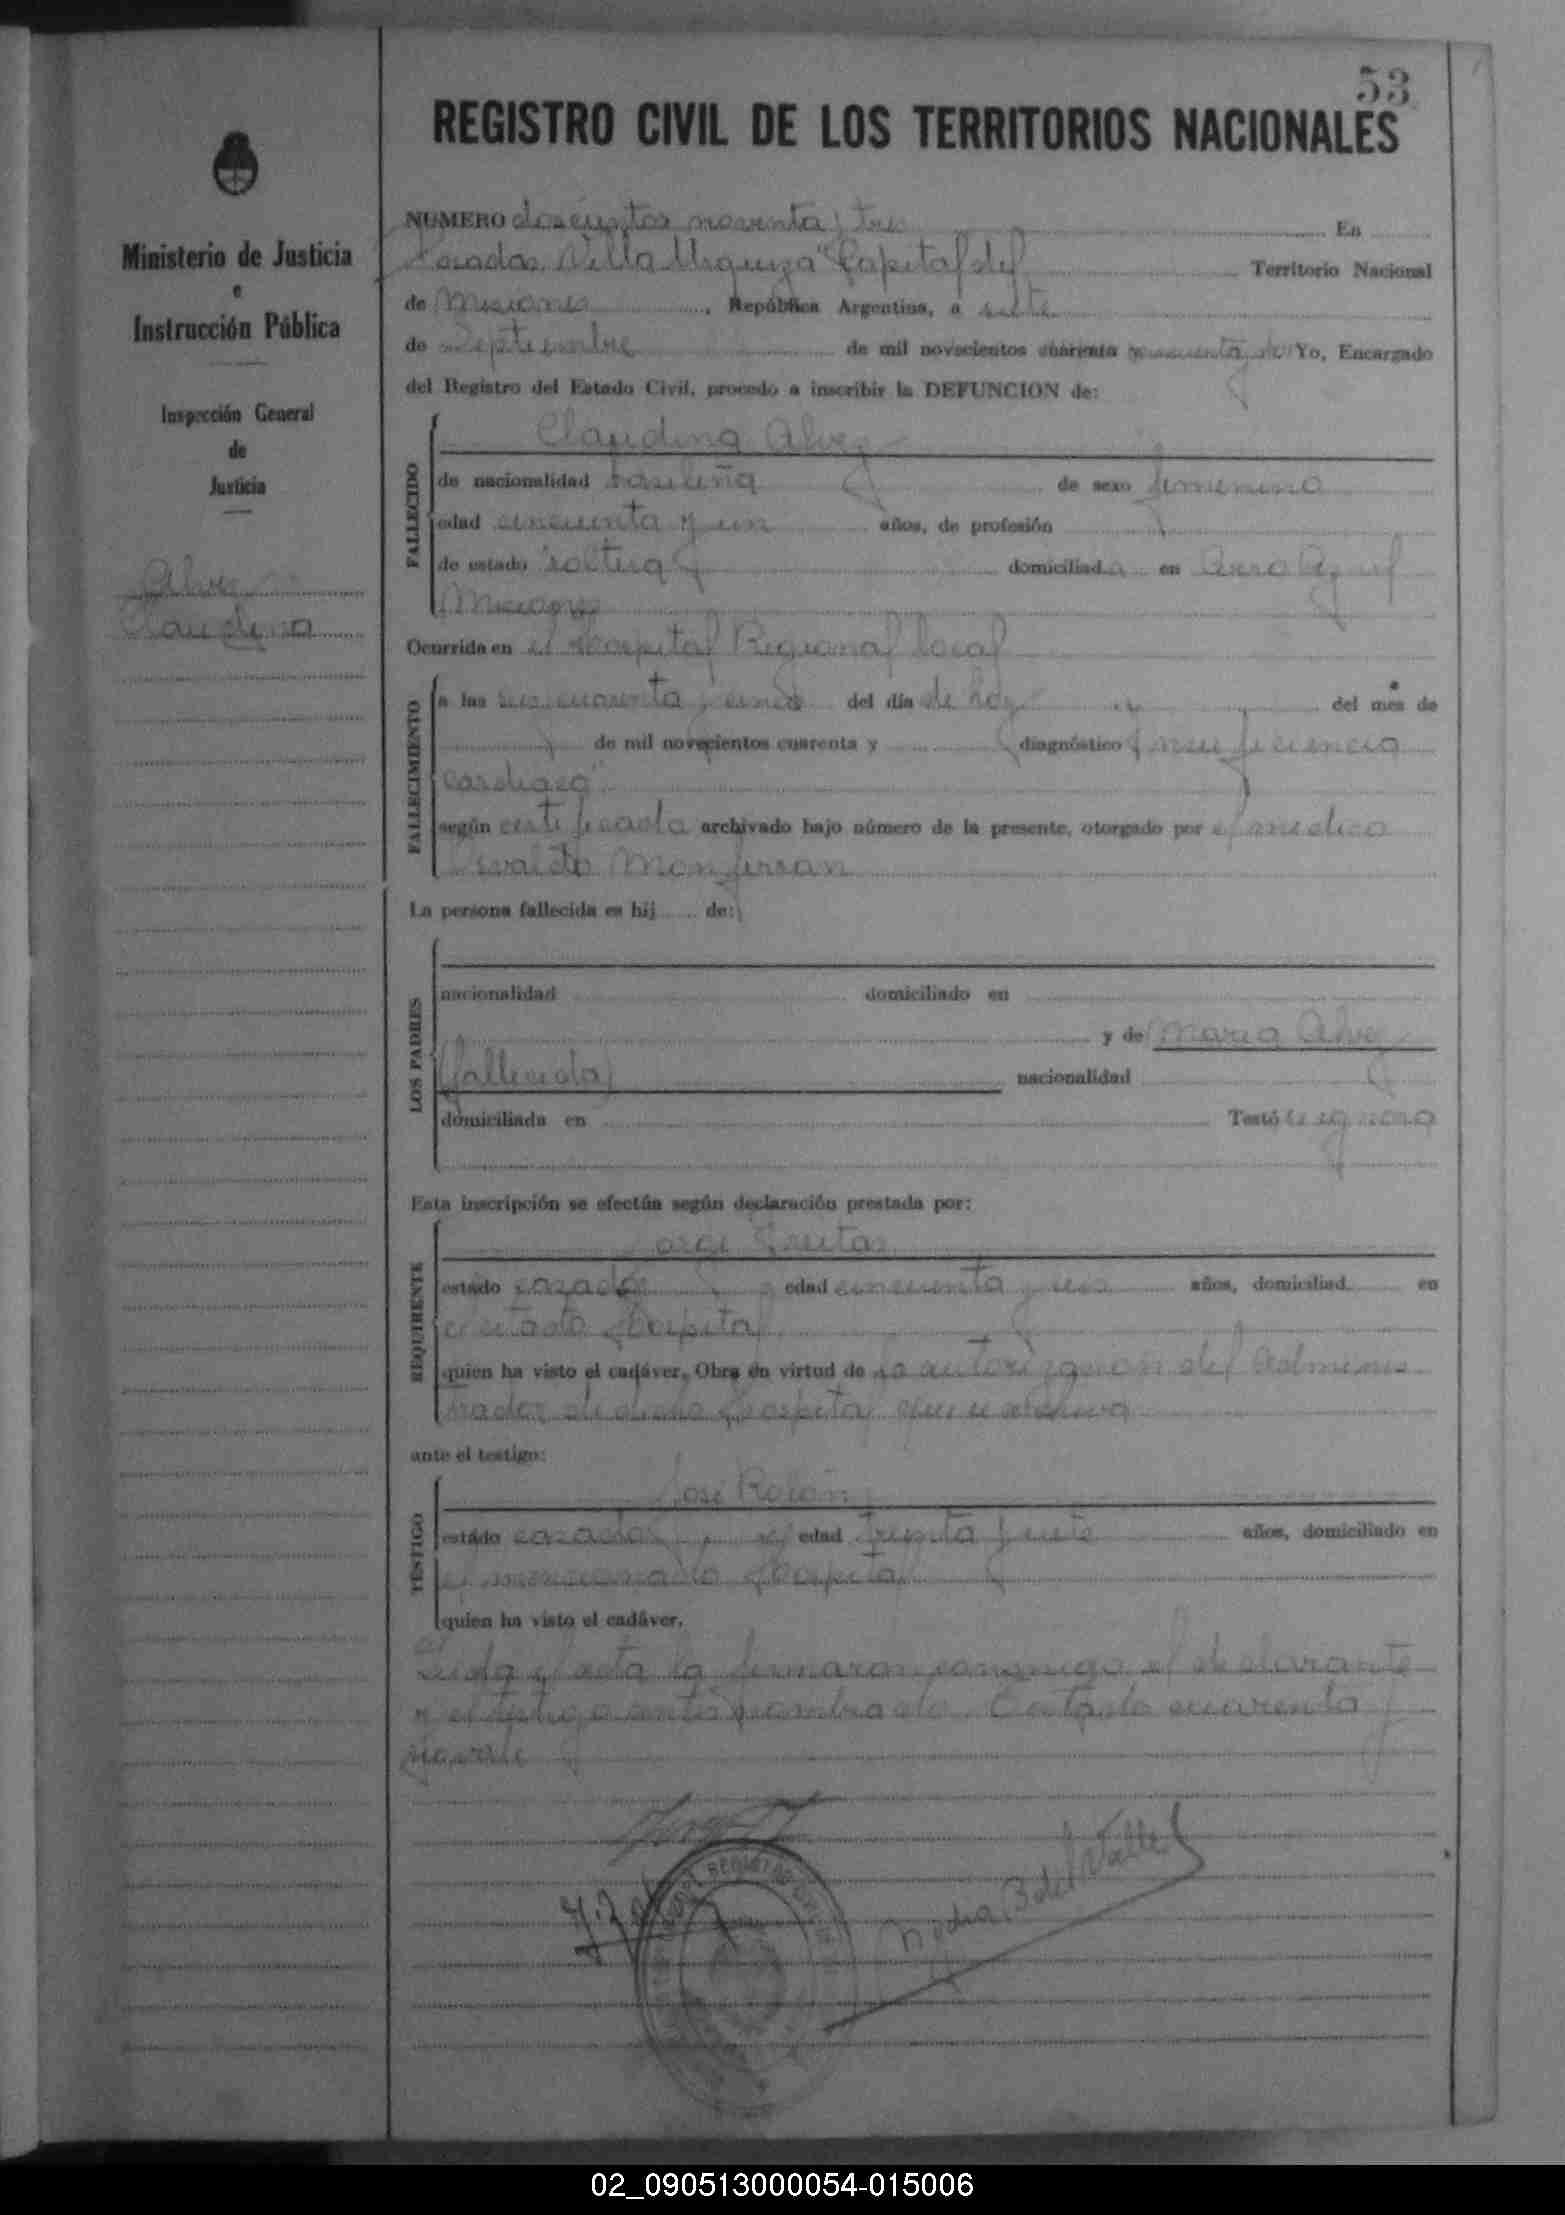 53
REGISTRO CIVIL DE LOS TERRITORIOS NACIONALES
Ministerio de Justicia
e
Instrucción Pública
Inspección General
de
Justicia
Alvez
Claudina
NUMERO doscientos noventa y tres En
Posadas Villa Urquiza "Capital del Territorio Nacional
de Misiones, República Argentina, a siete
de Septiembre de mil novecientos cuarenta Yo, Encargado
del Registro del Estado Civil, procedo a inscribir la DEFUNCION de:
FALLECIDO
Claudina Alvez
de nacionalidad brasileña de sexo femenino
edad cincuenta y un años, de profesión
de estado soltera domiciliada en
Misiones
Ocurrida en el Hospital Regional local
FALLECIMIENTO
a las seis cuarenta y cinco del día de hoy del mes de
de mil novecientos cuarenta y diagnóstico "Insuficiencia
cardiaca"
según certificado archivado bajo número de la presente, otorgado por el médico
Osvaldo Monferran
La persona fallecida es hij de:
LOS PADRES
nacionalidad domiciliado en
y de Maria Alvez
(fallecida) nacionalidad
domiciliada en Testó se ignora
Esta inscripción se efectúa según declaración prestada por:
REQUIRENTE
Jorge Freitas
estado casado edad cincuenta y años, domiciliad en
el citado Hospital
quien ha visto el cadáver. Obra en virtud de la autorización del Adminis
trador de dicho Hospital que se archiva
ante el testigo:
TESTIGO
José Rolón
estado casado edad treinta y siete años, domiciliado en
el mencionado Hospital
quien ha visto el cadáver.
Leida el acta la firmaron conmigo el declarante
y el testigo antes nombrado. Testado cuarenta
no vale
REGISTRO CIVIL
B del Valle
02_090513000054-015006